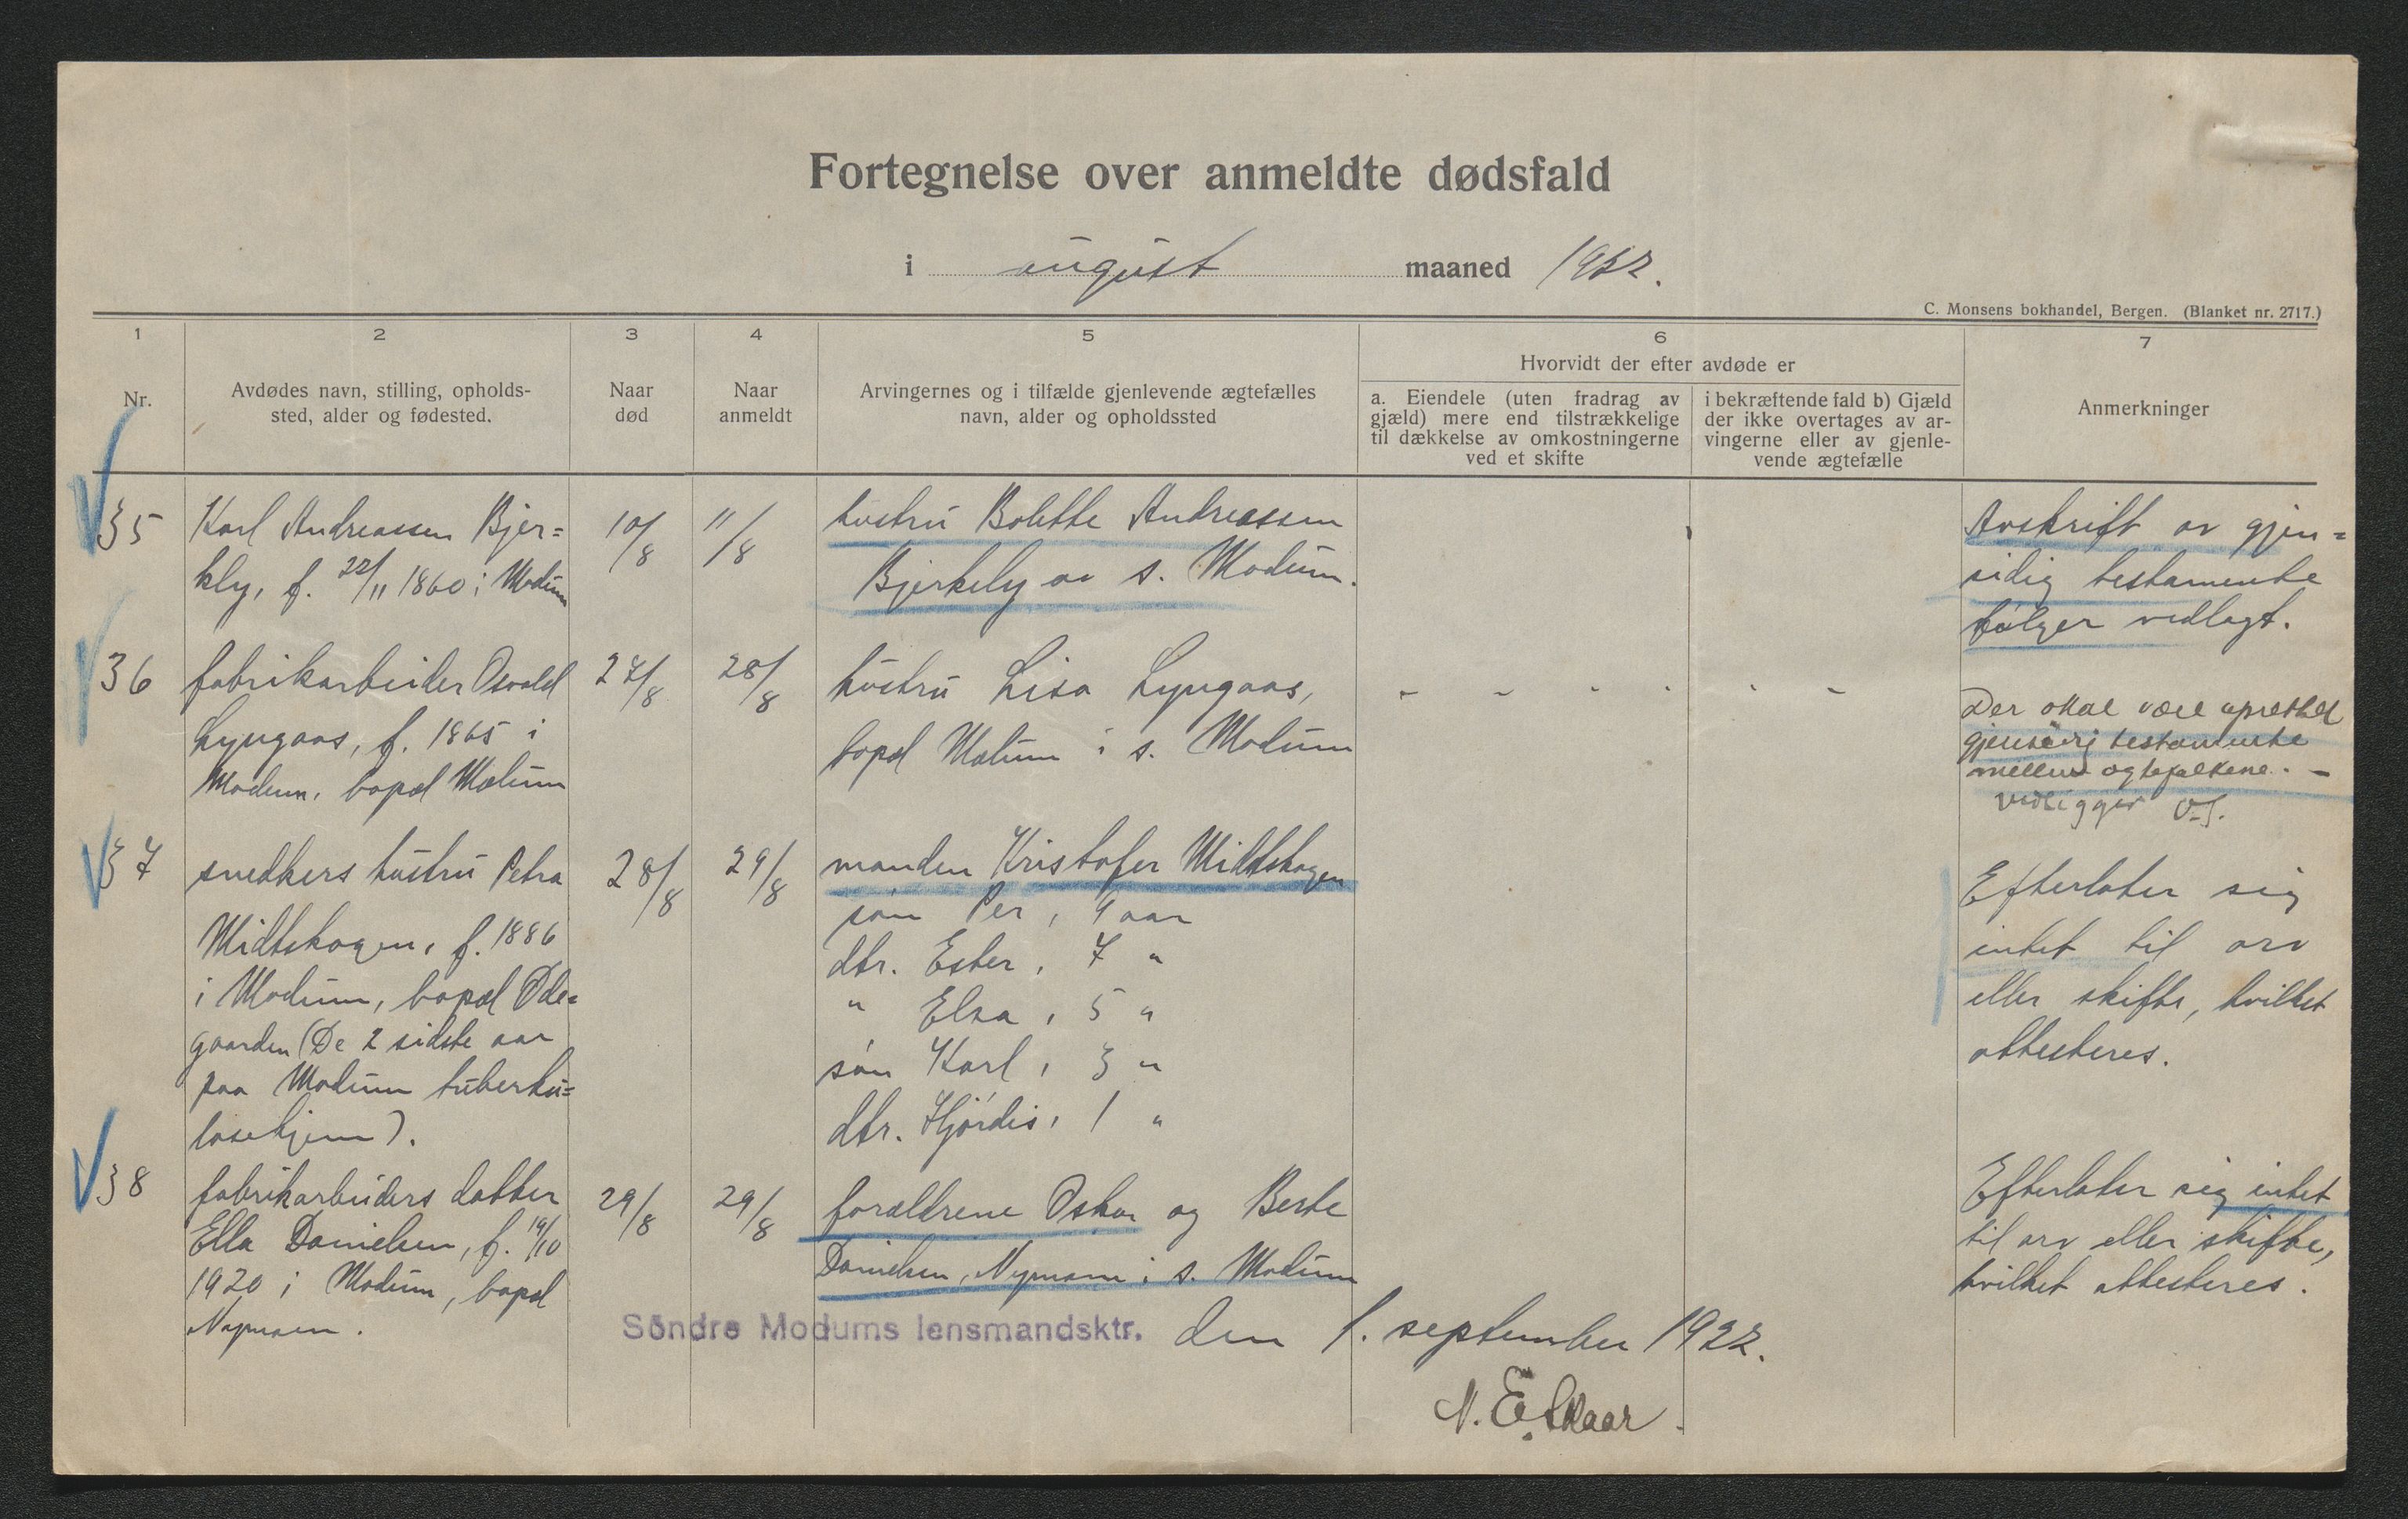 Fortegnelse over anmeldte dødsfald
i august maaned 1922.
C. Monsens bokhandel, Bergen. (Blanket nr. 2717.)
1
Nr.
2
Avdødes navn, stilling, opholds-
sted, alder og fødested.
3
Naar
død
4
Naar
anmeldt
5
Arvingernes og i tilfælde gjenlevende ægtefælles
navn, alder og opholdssted
6
Hvorvidt der efter avdøde er
a. Eiendele (uten fradrag av
gjæld) mere end tilstrækkelige
til dækkelse av omkostningerne
ved et skifte
i bekræftende fald b) Gjæld
der ikke overtages av ar-
vingerne eller av gjenle-
vende ægtefælle
7
Anmerkninger
35
Karl Andreassen Bjer=
kly, f. 22/11 1860 i Modum
10/8
11/8
hustru Bolette Andreassen
Bjerkely av s. Modum.
Avskrift av gjen=
sidig testamente
følger vedlagt.
36
fabrikarbeider Osvald
Lyngaas, f. 1865 i
Modum, bopæl Modum
27/8
28/8
hustru Lisa Lyngaas,
bopæl Modum i s. Modum
- - - - - -
Der skal være oprettet
gjensidig testamente
mellem egtefolkene. -
Vedligger
37
snedkers hustru Petra
Midtskogen, f. 1886
i Modum, bopæl Øde=
gaarden (De 2 sidste aar
paa Modum tuberku=
losehjem).
28/8
29/8
manden Kristofer Midtskogen
søn Per, 9 aar
dtr. Ester, 7 "
" Elsa, 5 "
søn Karl, 3 "
dtr. Hjørdis, 1 "
Efterlater sig
intet til arv
eller skifte, hvilket
attesteres.
38
fabrikarbeiders datter
Ella Danielsen, f. 19/10
1920 i Modum, bopæl
Nymoen.
29/8
29/8
forældrene Oskar og Berte
Danielsen, Nymoen i s. Modum
Efterlater sig intet
til arv eller skifte,
hvilket attesteres.
Söndre Modums lensmandsktr. den 1. september 1922.
N. E. Skaar.